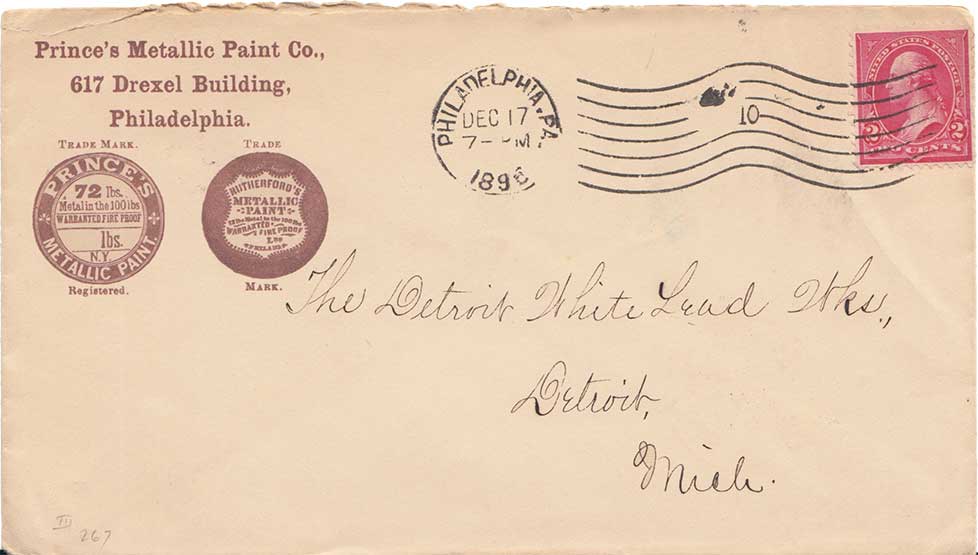 Prince's Metallic Paint Co.,
617 Drexel Building,
Philadelphia.
TRADE MARK.
PRINCE'S
72 lbs.
Metal in the 100 lbs
WARRANTED FIRE PROOF
lbs.
N.Y
METALLIC PAINT.
Registered.
TRADE
RUTHERFORD'S
METALLIC
PAINT
72 lbs Metal in the 100 lbs
WARRANTED FIRE PROOF
Lbs
MARK.
PHILADELPHIA, PA.
DEC 17
7- PM
189
10
UNITED STATES POSTAGE
2 2
TWO CENTS
The Detroit White Lead Wks.,
Detroit,
Mich.
III
267